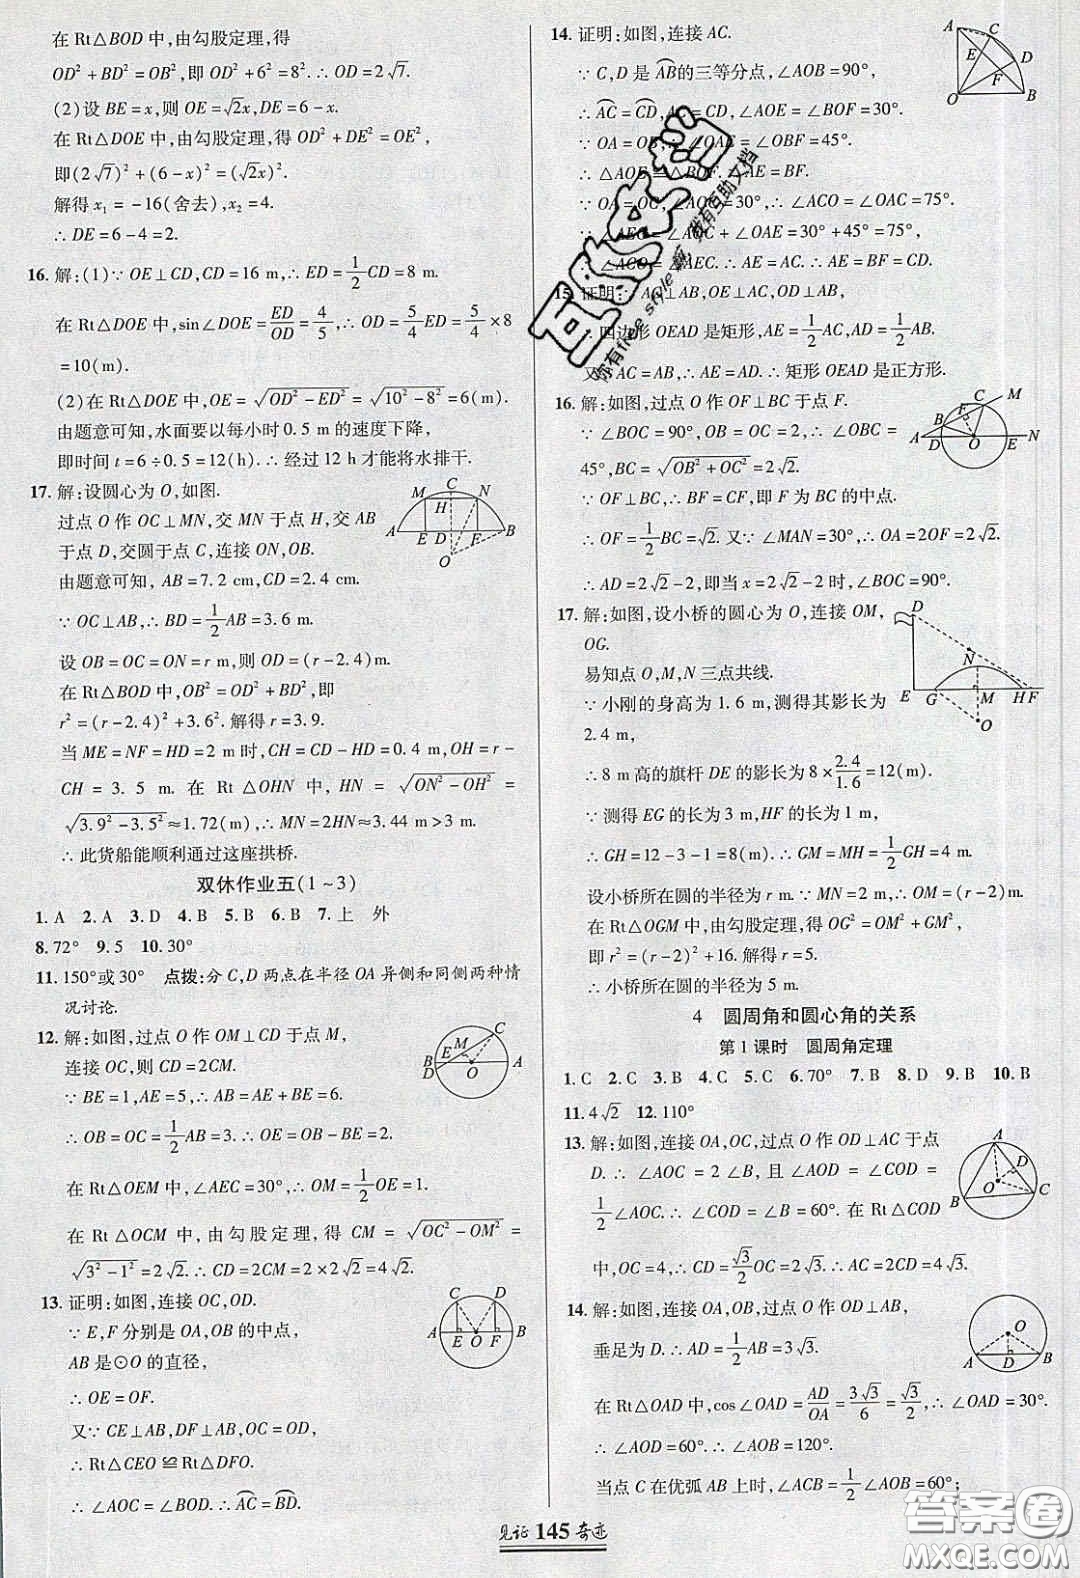 在 Rt△BOD 中,由勾股定理,得
OD²+BD²=OB²,即 OD²+6²=8².∴OD=2√7.
(2)设 BE=x,则 OE=√2x,DE=6-x.
在 Rt△DOE 中,由勾股定理,得 OD²+DE²=OE²,
即(2√7)²+(6-x)²=(√2x)².
解得 x₁=-16(舍去),x₂=4.
∴DE=6-4=2.
16. 解:(1)∵OE⊥CD,CD=16 m,∴ED=1/2CD=8 m.
在 Rt△DOE 中,sin∠DOE=ED/OD=4/5,∴OD=5/4ED=5/4×8
=10(m).
(2)在 Rt△DOE 中,OE=√(OD²-ED²)=√(10²-8²)=6(m).
由题意可知,水面要以每小时0.5 m 的速度下降,
即时间 t=6÷0.5=12(h).∴经过 12 h 才能将水排干.
17. 解:设圆心为 O,如图.
过点 O 作 OC⊥MN,交 MN 于点 H,交 AB
于点 D,交圆于点 C,连接 ON,OB.
由题意可知, AB=7.2 cm,CD=2.4 cm.
∵OC⊥AB,∴BD=1/2AB=3.6 m.
设 OB=OC=ON=r m,则 OD=(r-2.4)m.
在 Rt△BOD 中,OB²=OD²+BD²,即
r²=(r-2.4)²+3.6². 解得 r=3.9.
当 ME=NF=HD=2 m时,CH=CD-HD=0.4 m,OH=r-
CH=3.5 m. 在 Rt△OHN 中, HN=√(ON²-OH²)=
√(3.9²-3.5²)≈1.72(m),∴MN=2HN≈3.44 m>3 m.
∴此货船能顺利通过这座拱桥.
双休作业五(1~3)
1. A 2. A 3. D 4. B 5. B 6. B 7. 上 外
8. 72° 9. 5 10. 30°
11. 150°或30° 点拨:分 C,D 两点在半径 OA 异侧和同侧两种情
况讨论.
12. 解:如图,过点 O 作 OM⊥CD 于点 M,
连接 OC,则 CD=2CM.
∵BE=1,AE=5,∴AB=AE+BE=6.
∴OB=OC=1/2AB=3.∴OE=OB-BE=2.
在 Rt△OEM 中,∠AEC=30°,∴OM=1/2OE=1.
在 Rt△OCM 中,由勾股定理,得 CM=√(OC²-OM²)=
√(3²-1²)=2√2.∴CD=2CM=2×2√2=4√2.
13. 证明:如图,连接 OC,OD.
∵E,F 分别是 OA,OB 的中点,
AB 是⊙O 的直径,
∴OE=OF.
又∵CE⊥AB,DF⊥AB,OC=OD,
∴Rt△CEO≌Rt△DFO.
∴∠AOC=∠BOD.∴AC⌒=BD⌒.
M C N
H
A E D F B
O
C
E M
B A
D O
C D
A E O F B
14. 证明:如图,连接 AC.
∵C,D 是AB⌒的三等分点,∠AOB=90°,
∴AC⌒=CD⌒,AC=CD,∠AOE=∠BOF=30°.
∵OA=OB,∴∠OAE=∠OBF=45°.
∴△AOE≌△BOF.∴AE=BF.
∵OA=OC,∠AOE=30°,∴∠ACO=∠OAC=75°.
∵∠AEC=∠AOC+∠OAE=30°+45°=75°,
∴∠ACO=∠AEC.∴AC=AE.∴AE=BF=CD.
15. 证明:∵AC⊥AB,OE⊥AC,OD⊥AB,
∴四边形 OEAD 是矩形,AE=1/2AC,AD=1/2AB.
又∵AC=AB,∴AE=AD.∴矩形 OEAD 是正方形.
16. 解:如图,过点 O 作 OF⊥BC 于点 F.
∵∠BOC=90°,OB=OC=2,∴∠OBC=∠OCB=
45°,BC=√(OB²+OC²)=2√2.
∵OF⊥BC,∴BF=CF,即 F 为 BC 的中点.
∴OF=1/2BC=√2. 又∵∠MAN=30°,∴OA=2OF=2√2.
∴AD=2√2-2,即当 x=2√2-2时,∠BOC=90°.
17. 解:如图,设小桥的圆心为 O,连接 OM,
OG.
易知点 O,M,N 三点共线.
∵小刚的身高为 1.6 m,测得其影长为
2.4 m,
∴8 m 高的旗杆 DE 的影长为 8×2.4/1.6=12(m).
∵测得 EG 的长为 3 m,HF 的长为 1 m,
∴GH=12-3-1=8(m).∴GM=MH=1/2GH=4 m.
设小桥所在圆的半径为 r m,∵MN=2 m,∴OM=(r-2)m.
在 Rt△OGM 中,由勾股定理,得 OG²=OM²+GM²,
即 r²=(r-2)²+16. 解得 r=5.
∴小桥所在圆的半径为 5 m.
4 圆周角和圆心角的关系
第1课时 圆周角定理
1. C 2. C 3. B 4. C 5. C 6. 70° 7. B 8. D 9. B 10. B
11. 4√2 12. 110°
13. 解:如图,连接 OA,OC,过点 O 作 OD⊥AC 于点
D.∴∠AOC=2∠B,且∠AOD=∠COD=
1/2∠AOC.∴∠COD=∠B=60°. 在 Rt△COD
中,OC=4,∴CD=√3/2OC=2√3.∴AC=2CD=4√3.
14. 解:如图,连接 OA,OB,过点 O 作 OD⊥AB,
垂足为 D.∴AD=1/2AB=3√3.
在 Rt△OAD 中,cos∠OAD=AD/OA=3√3/6=√3/2,∴∠OAD=30°.
∴∠AOD=60°.∴∠AOB=120°.
当点 C 在优弧 AB 上时,∠ACB=1/2∠AOB=60°;
A C
D
E
F
O B
C M
B F
A D O E N
D
N
E G M H F
O
A
D
O
B C
O
A D B
见证 145 奇迹
答案圈
MXQE.COM